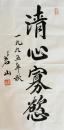 清心寡慾
一九九五年秋
若山